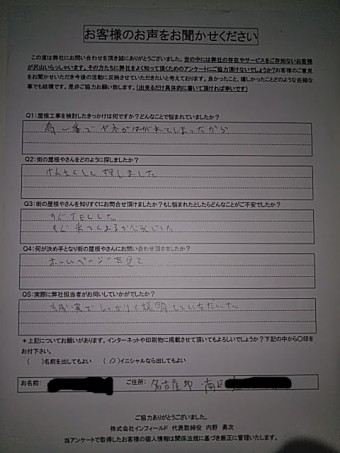 お客様のお声をお聞かせください
この度は弊社にお問い合わせを頂き誠にありがとうございました。世の中には弊社の存在やサービスをご存知ないお客様
が沢山いらっしゃいます。その方たちに弊社をよく知って頂くためのアンケートにご協力頂けないでしょうか？お客様のご意見
をお聞かせいただき今後の活動に反映させていただきたいと考えております。良かったこと、嬉しかったことどのような些細な
事でも結構です。是非ご協力お願い致します。(出来るだけ具体的に書いて頂ければ幸いです)
Q1:屋根工事を検討したきっかけは何ですか？どんなことで悩まれていましたか？
でヤネがはがれてしまったから
Q2:街の屋根やさんをどのように探しましたか？
けんさくして探しました
Q3:街の屋根やさんを知りすぐにお問合せ頂けましたか？もし悩まれたとしたらどんなことがご不安でしたか？
すぐTELした
すぐ来てくれるか心配でした
Q4:何が決め手となり街の屋根やさんにお問い合わせ頂きましたか？
ホームページを見て
Q5:実際に弊社担当者がお伺いしていかがでしたか？
誠実でしっかり説明していただいた
＊上記についてお願いがあります。インターネットや印刷物に掲載させて頂いてもよろしいでしょうか？下記の中から〇印を
お付下さい。
( )名前を出してもよい ( 〇 )イニシャルなら出してもよい
お名前: ご住所: 名古屋市 南区
ご協力ありがとうございました。
株式会社インフィールド 代表取締役 内野 勇次
当アンケートで取得したお客様の個人情報は関係法規に基づき厳正に管理いたします。